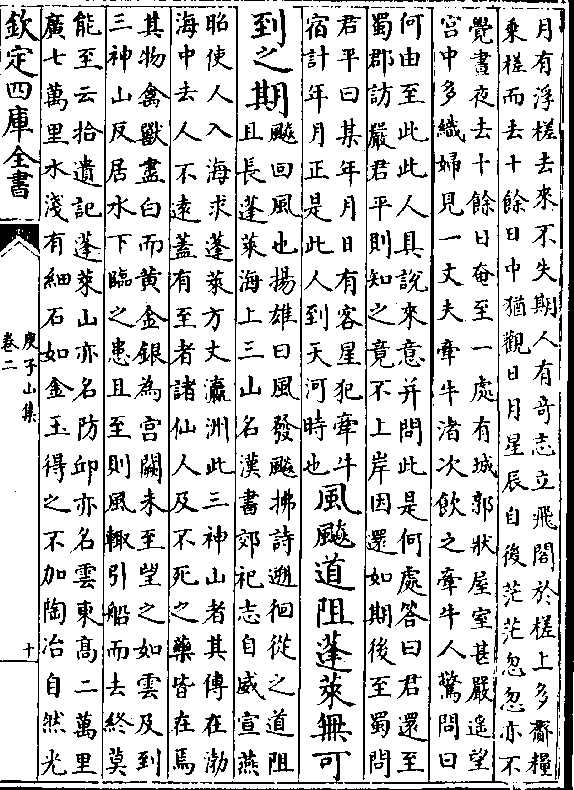 月有浮槎去來不失期人有奇志立飛閣於槎上多齎糧
乗槎而去十餘日中猶觀日月星辰自後茫茫忽忽亦不
覺晝夜去十餘日奄至一處有城郭狀屋室甚嚴遥望
宫中多織婦見一丈夫牽牛渚次飲之牽牛人驚問曰
何由至此此人具說來意并問此是何處答曰君還至
蜀郡訪嚴君平則知之竟不上岸因還如期後至蜀問
君平曰某年月日有客星犯牽牛
宿計年月正是此人到天河時也
風飈道阻蓬萊無可
到之期
飈回風也揚雄曰風發飈拂詩遡徊從之道阻
且長蓬萊海上三山名漢書郊祀志自威宣燕
昭使人入海求蓬萊方丈瀛洲此三神山者其傳在渤
海中去人不逺蓋有至者諸仙人及不死之藥皆在焉
其物禽獸盡白而黄金銀為宫闕未至望之如雲及到
三神山反居水下臨之患且至則風輙引船而去終莫
能至云拾遺記蓬萊山亦名防邱亦名雲東髙二萬里
廣七萬里水淺有細石如金玉得之不加陶冶自然光
欽定四庫全書
庾子山集
卷二
十